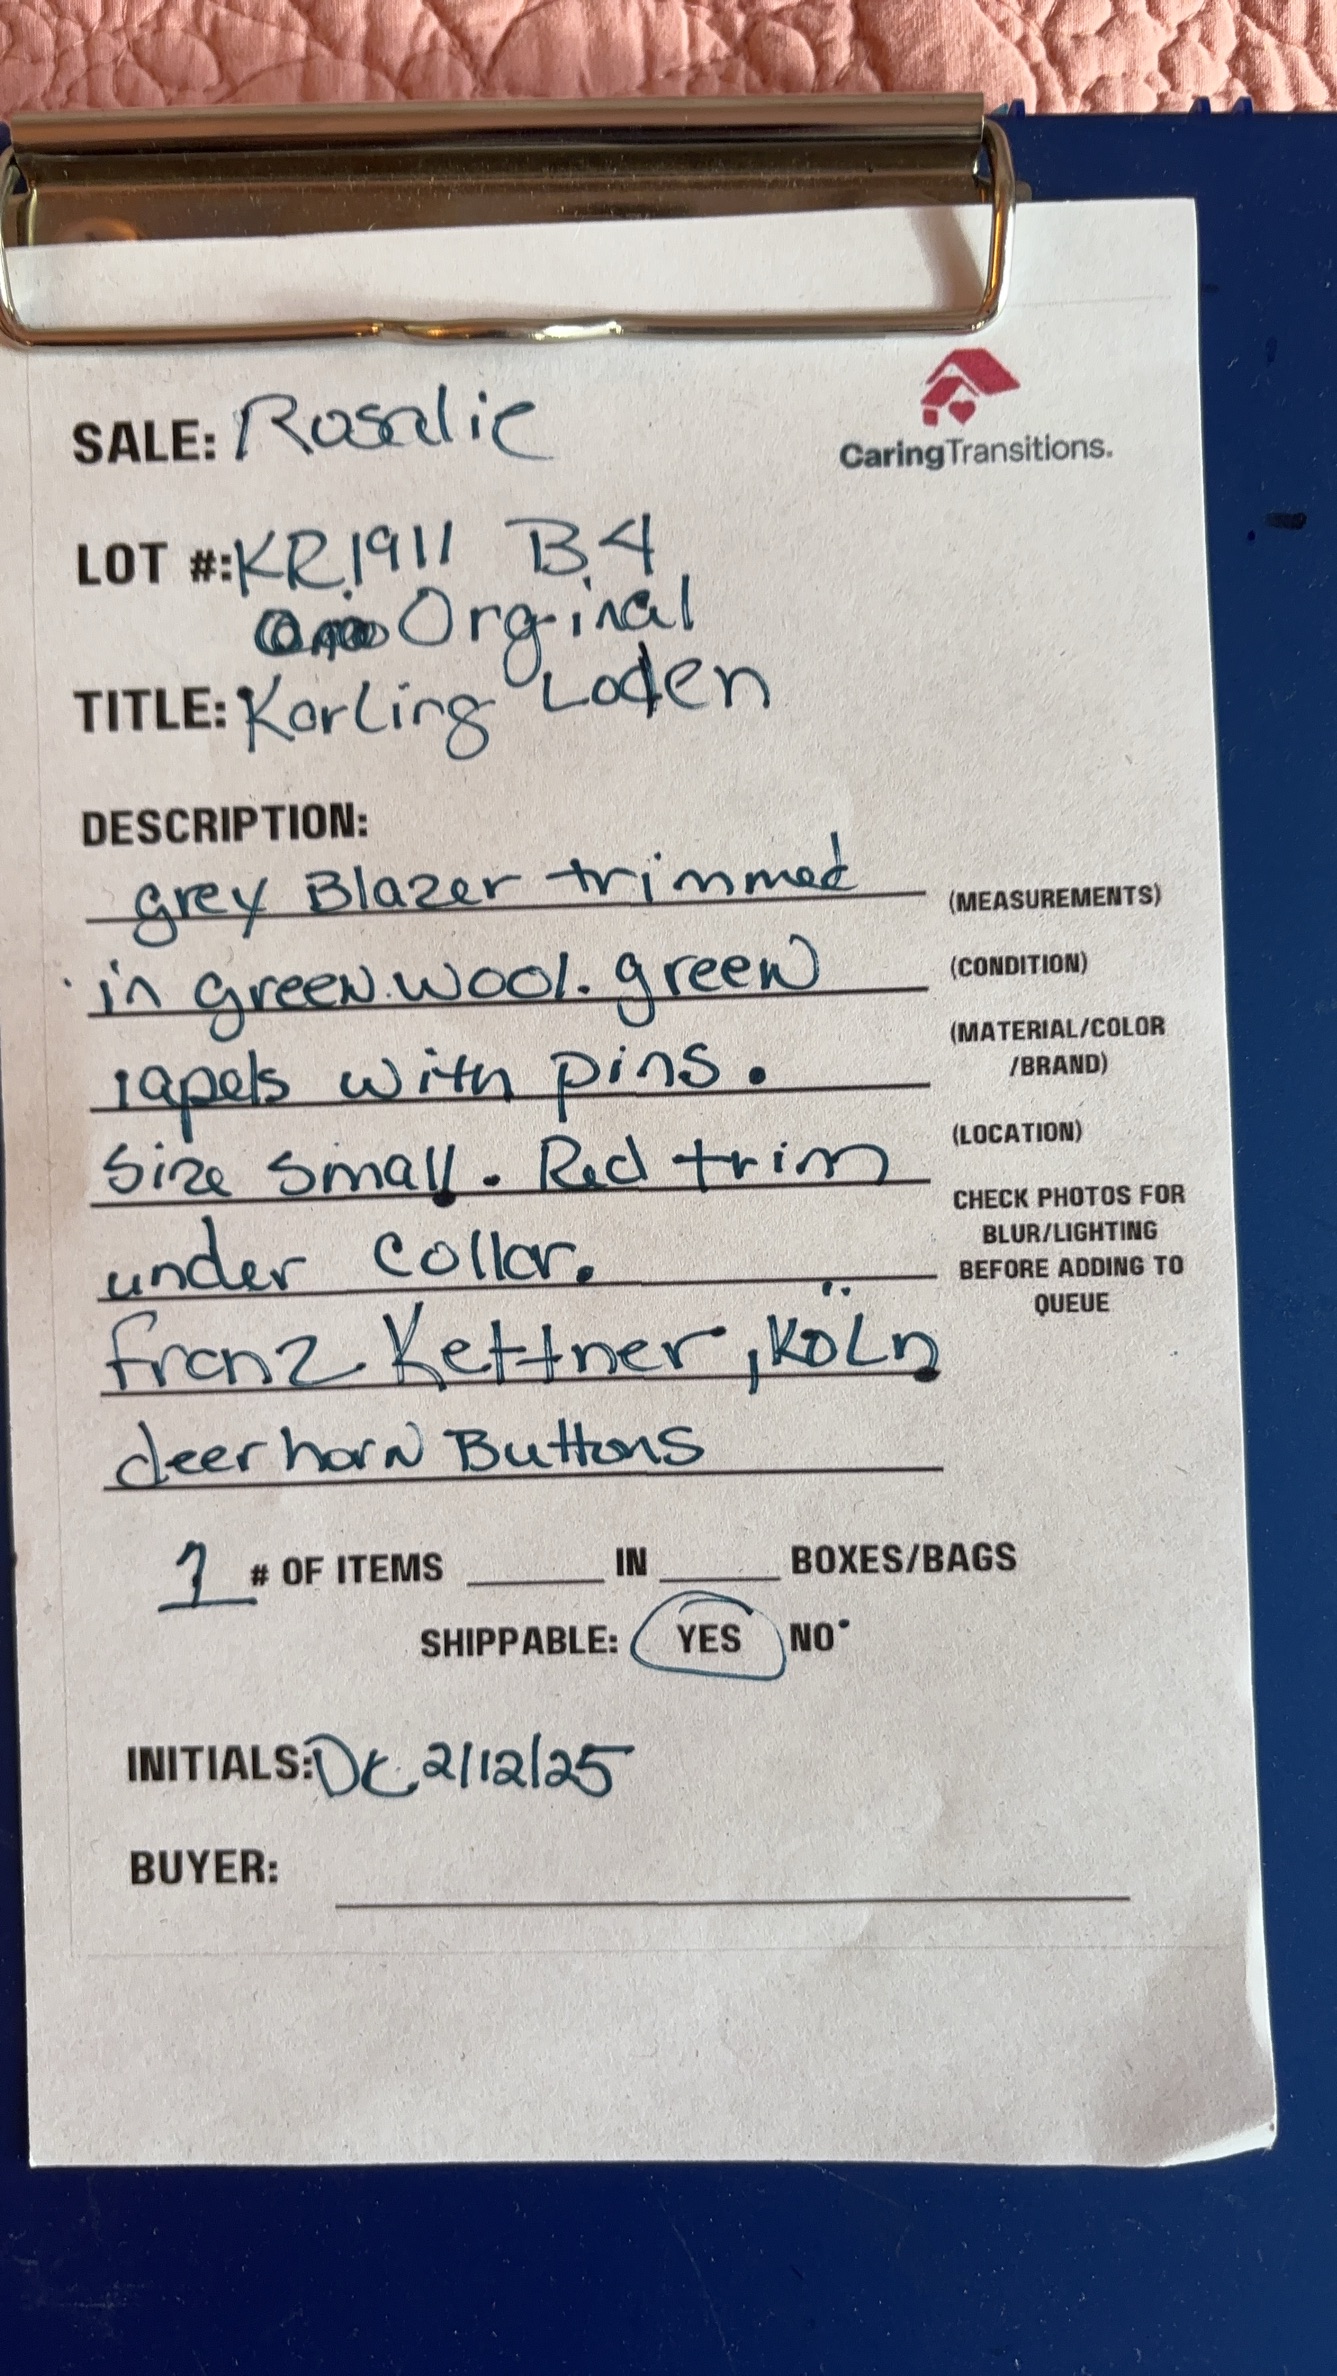 SALE: Rosalie
CaringTransitions.
LOT #: KR1911 B4
Orginal
TITLE: Karling Loden
DESCRIPTION:
grey Blazer trimmed
(MEASUREMENTS)
in green wool. green
(CONDITION)
lapels with pins.
(MATERIAL/COLOR
/BRAND)
Size small. Red trim
(LOCATION)
under collar.
CHECK PHOTOS FOR
BLUR/LIGHTING
BEFORE ADDING TO
QUEUE
franz Kettner, KöLn
deer horn Buttons
1 # OF ITEMS ____ IN ____ BOXES/BAGS
SHIPPABLE: YES NO
INITIALS: DK 2/12/25
BUYER: